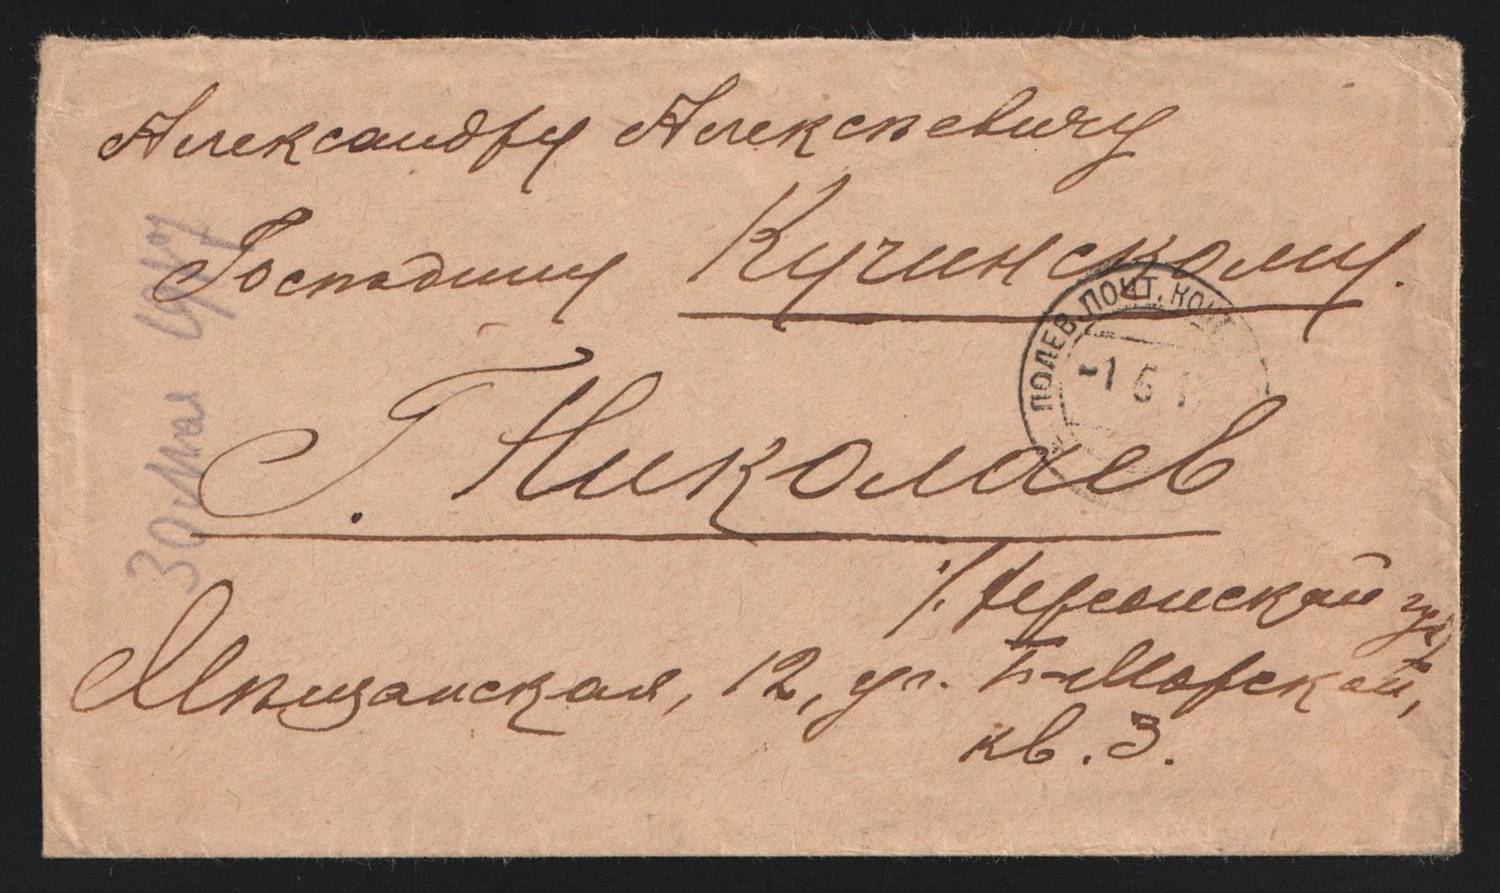 Александру Алексѣевичу
Господину Кучинскому.
Г. Николаев
/. Херсонской губ/
Мѣщанская, 12, уг. Б-Морской,
кв. 3.
ПОЛЕВ. ПОЧТ. КОНТ
-1 6 1
30 мая 1917